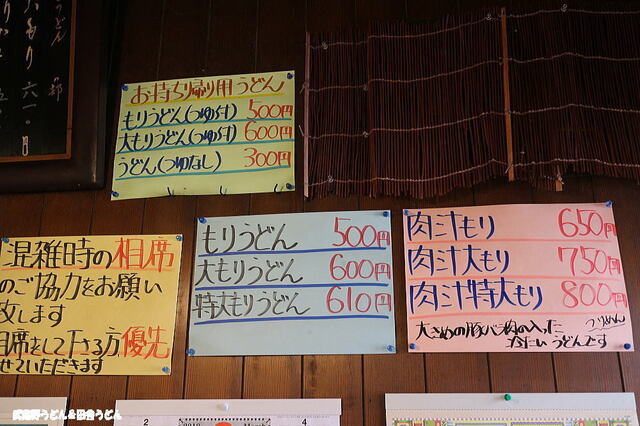 お持ち帰り用うどん
もりうどん(つゆ付) 500円
大もりうどん(つゆ付) 600円
うどん(つゆなし) 300円
混雑時の相席
のご協力をお願い
致します
相席をして下さる方優先
せていただきます
もりうどん 500円
大もりうどん 600円
特大もりうどん 610円
肉汁もり 650円
肉汁大もり 750円
肉汁特大もり 800円
大きめの豚バラ肉の入った
冷たいうどんです
武蔵野うどん&田舎うどん